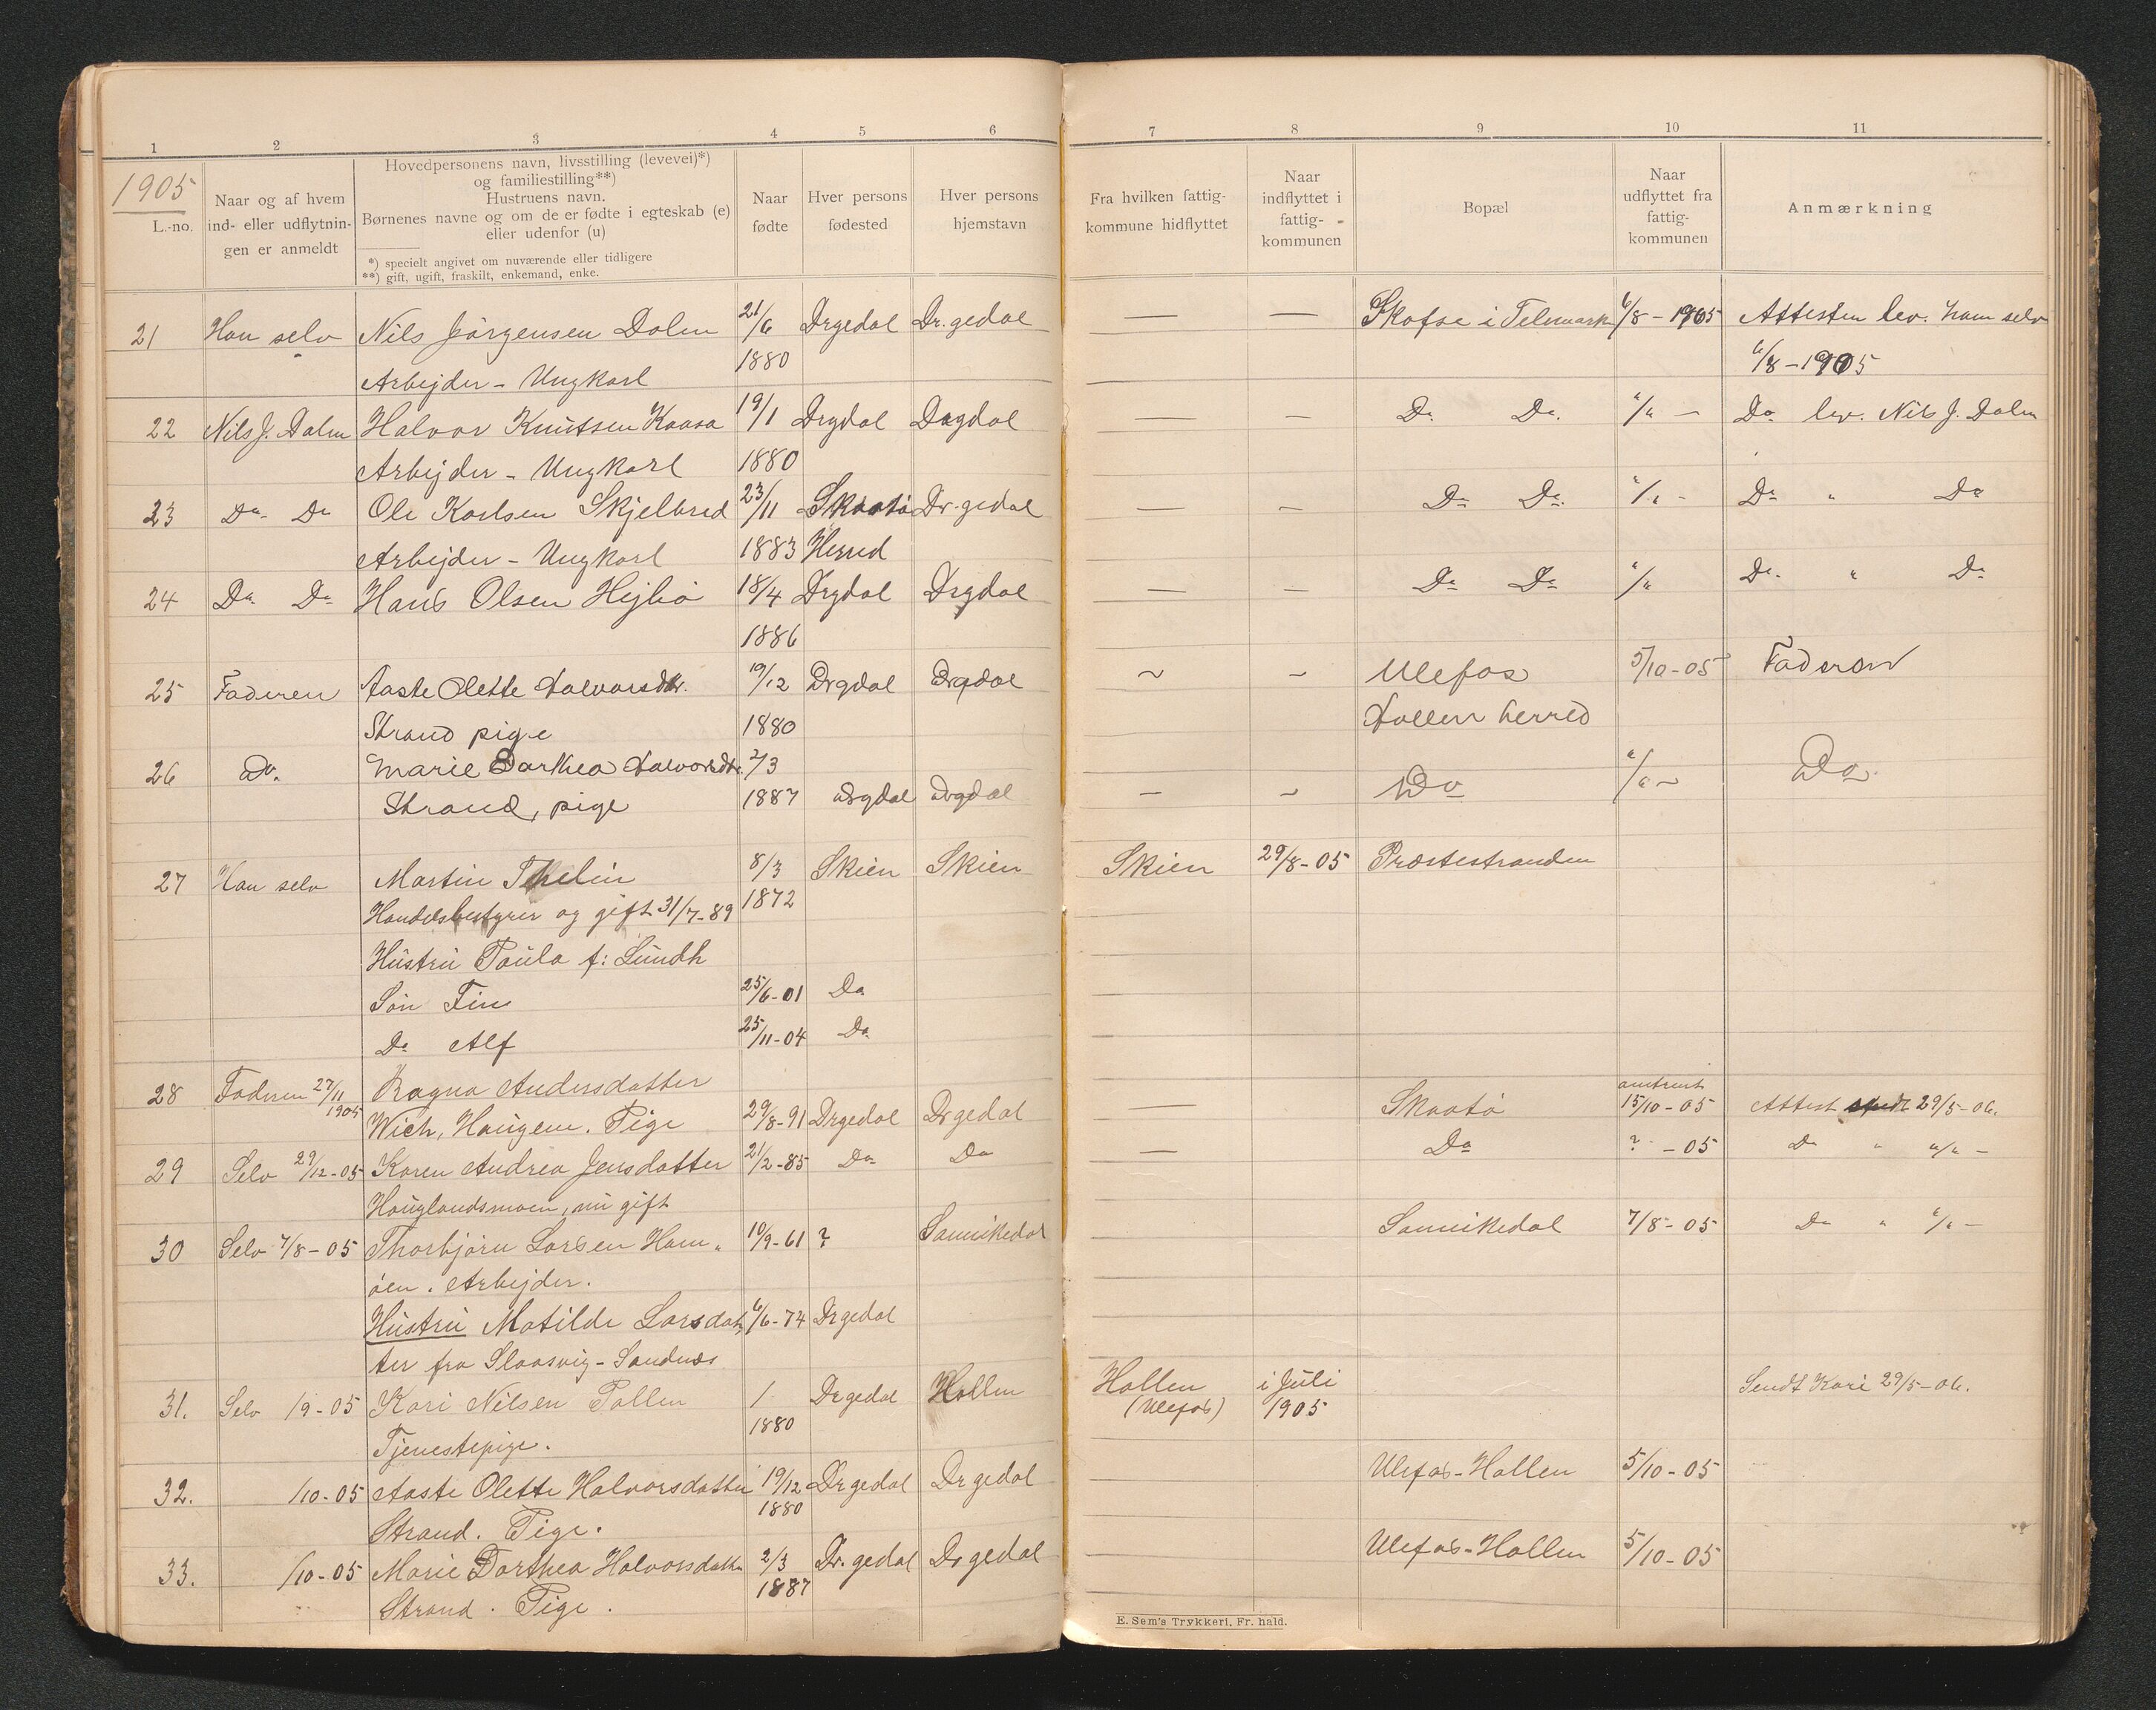 1 2 3 4 5 6 7 8 9 10 11
1905
L.-no.
Naar og af hvem
ind- eller udflytnin-
gen er anmeldt
Hovedpersonens navn, livsstilling (levevei)*)
og familiestilling**)
Hustruens navn.
Børnenes navne og om de er fødte i egteskab (e)
eller udenfor (u)
*) specielt angivet om nuværende eller tidligere
**) gift, ugift, fraskilt, enkemand, enke.
Naar
fødte
Hver persons
fødested
Hver persons
hjemstavn
Fra hvilken fattig-
kommune hidflyttet
Naar
indflyttet i
fattig-
kommunen
Bopæl
Naar
udflyttet fra
fattig-
kommunen
Anmærkning
21 Han selv Nils Jörgensen Dalen 21/6 Drgedal Dr.gedal — — Skafse i Telemark 6/8 - 1905 Attesten lev. ham selv
Arbejder - Ungkarl 1880 6/8 - 1905
22 Nils J. Dalen Halvor Knutsen Kaasa 19/1 Drgdal Drgdal — — Do Do. "/" — Do lev. Nils J. Dalen
Arbejder - Ungkarl 1880
23 Do Do Ole Karlsen Skjelbred 23/11 Skaatö Dr.gedal — — Do Do. "/" - Do " Do
Arbejder - Ungkarl 1883 Herred
24 Do Do Hans Olsen Hejbö 18/4 Drgdal Drgdal — — Do Do "/" Do. " Do
1886
25 Faderen Aaste Olette Halvorsdtr. 19/12 Drgdal Drgdal ~ – Ulefos 5/10-05 Faderen
Strand pige 1880 Hollen herred
26 Do. Marie Dorthea Halvorsdtr. 2/3 Do "/" ~ Do.
Strand, pige 1887 Drgdal Drgdal — ~
27 Han selv Martin Thelin 8/3 Skien Skien Skien 29/8-05 Præstestranden
Handelsbestyrer og gift 31/7-89 1872
Hustru Paula f: Lundh
Sön Fin 25/6-01 Do
Do Alf 25/11-04 Do
28 Faderen 27/11 1905 Ragna Andersdatter omtrent
Wich, Haugene. Pige 29/8-91 Drgedal Drgedal — Skaatö 15/10-05 Attest sendt 29/5-06.
29 Selv 29/12-05 Karen Andrea Jensdatter 21/2-85 Do Do — Do ? -05 Do " "/" -
Hauglandsmoen, nu gift
30 Selv 7/8-05 Thorbjörn Larsen Ham- 10/9-61 ? Sannikedal Sannikedal 7/8-05 Do " "/" -
öen. Arbejder.
Hustru Matilde Larsdat- 6/6-74 Drgedal
ter fra Slaasvig-Sandnæs
31. Selv /9-05 Kari Nilsen Pollen / Drgedal Hollen Hollen i Juli Sendt Kari 29/5-06.
1880 (Ulefos) 1905
Tjenestepige.
32. /10-05 Aaste Olette Halvorsdatter 19/12 Drgedal Drgedal Ulefos-Hollen 5/10-05
1880
Strand. Pige.
33. /10-05 Marie Dorthea Halvorsdatter 2/3 Dr.gedal Drgedal Ulefos-Hollen 5/10-05
1887
Strand. Pige.
E. Sem's Trykkeri. Fr. hald.